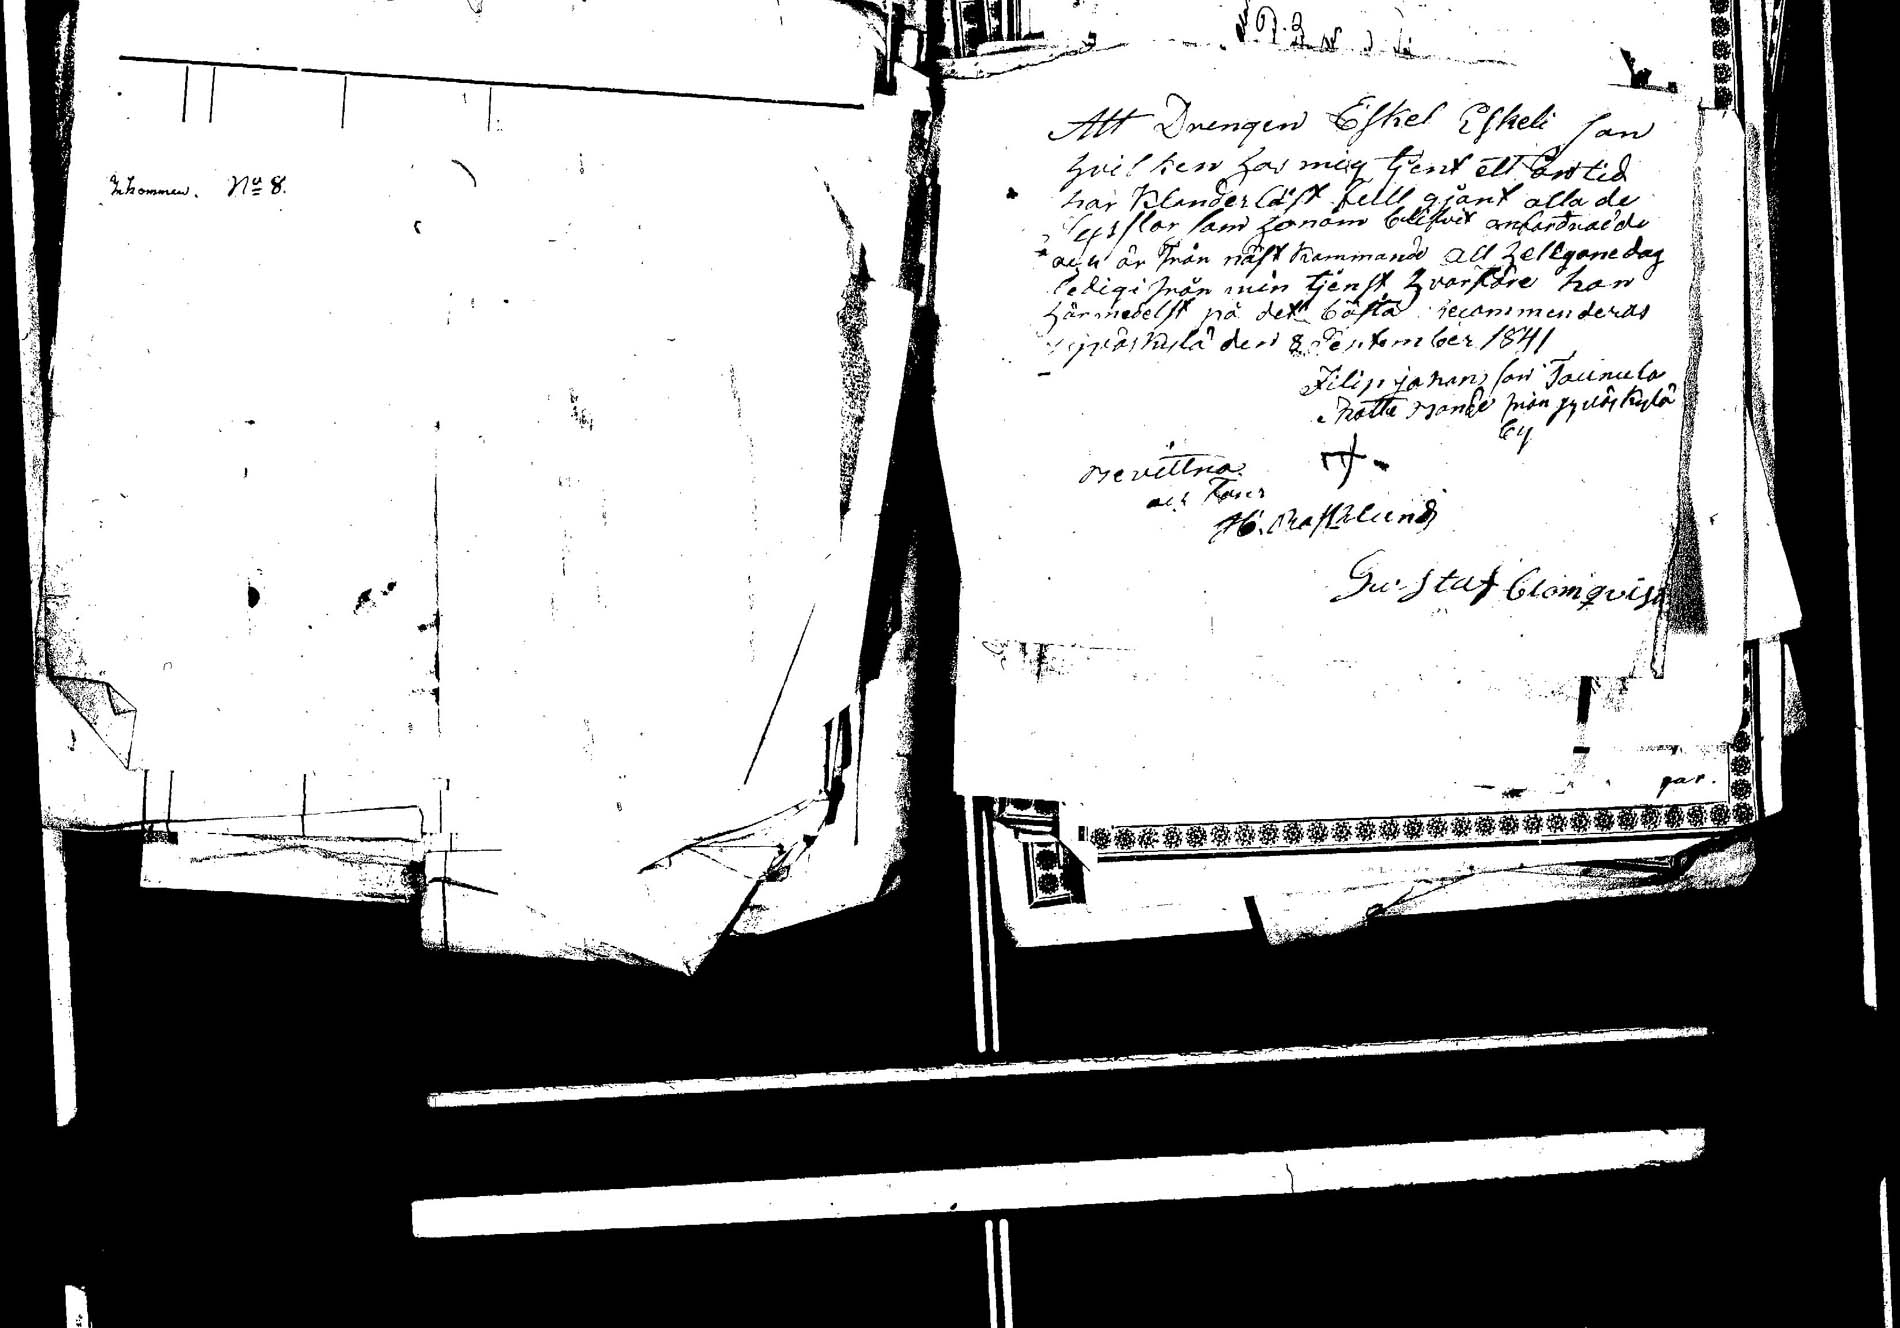 Inkommen. No 8.
Att Drengen Eskel Eskeli son
hvilken hos mig tjent ett års tid
har klanderlöst fullgjönt alla de
sysslor som honom blifvit anfördrade
och är från näst kommande all helgonedag
ledig ifrån min tjenst hvarföre han
härmedelst på det bästa recommenderas
jyväskylä den 8 September 1841
Filip johans son Taunula
från jyväskylä
by
Bevittna
Gustaf Blomqvist
par.